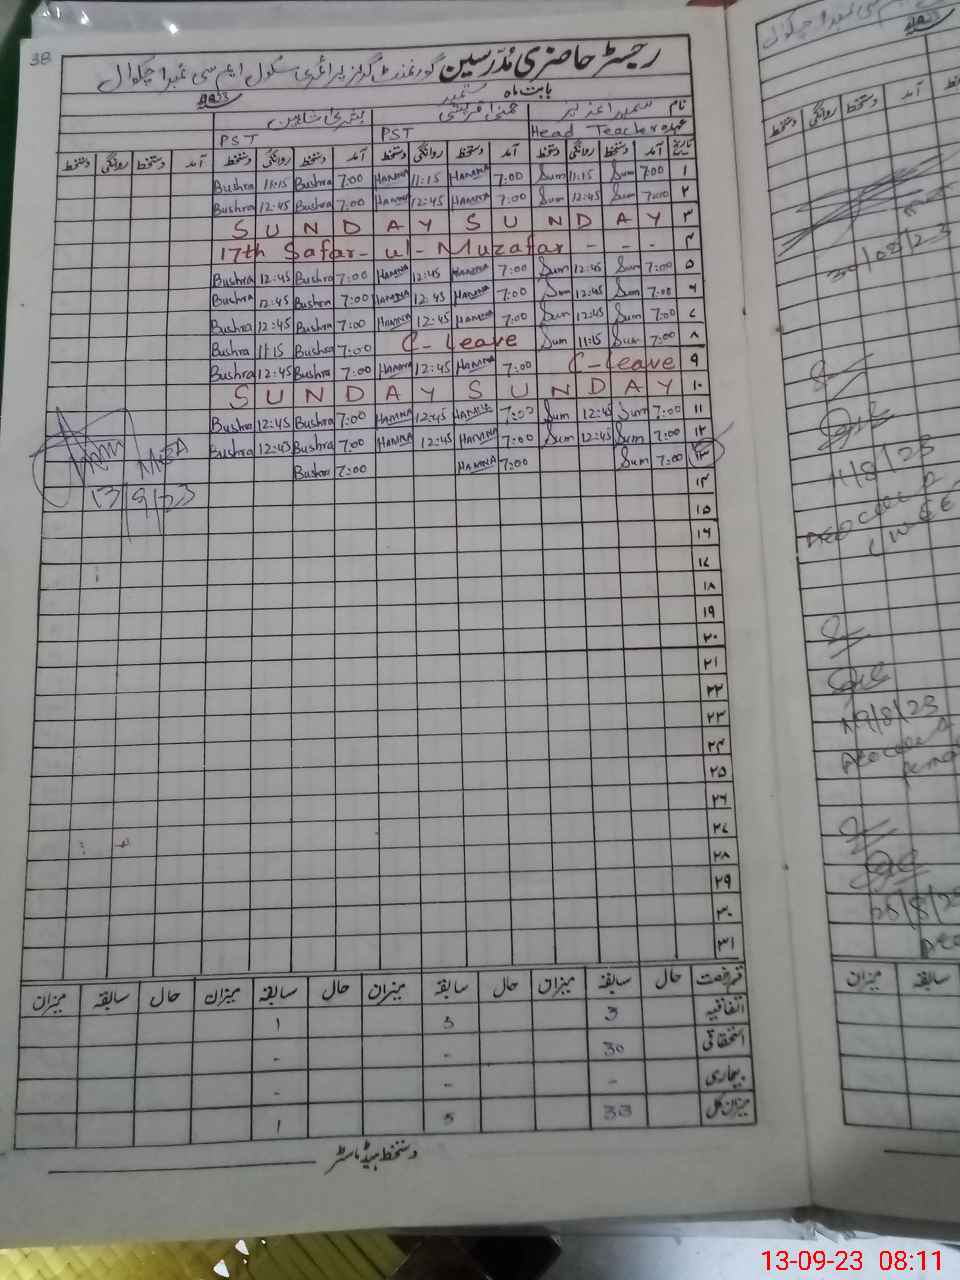 38
رجسٹر حاضری مدرسین گورنمنٹ گرلز پرائمری سکول ایم سی نمبر 1 چکوال
بابت ماہ ستمبر
نام بشریٰ شاہین
عہدہ Head Teacher PST PST
تاریخ آمد دستخط روانگی دستخط آمد دستخط روانگی دستخط آمد دستخط روانگی دستخط آمد دستخط روانگی دستخط
Bushra 11:15 Bushra 7:00 HAMNA 11:15 HAMNA 7:00 Sum 11:15 Sum 7:00 ۱
Bushra 12:45 Bushra 7:00 HAMNA 12:45 HAMNA 7:00 Sum 12:45 Sum 7:00 ۲
S U N D A Y S U N D A Y ۳
17th Safar-ul-Muzafar - - - ۴
Bushra 12:45 Bushra 7:00 HAMNA 12:45 HAMNA 7:00 Sum 12:45 Sum 7:00 ۵
Bushra 12:45 Bushra 7:00 HAMNA 12:45 HAMNA 7:00 Sum 12:45 Sum 7:00 ۶
Bushra 12:45 Bushra 7:00 HAMNA 12:45 HAMNA 7:00 Sum 12:45 Sum 7:00 ۷
Bushra 11:15 Bushra 7:00 C-Leave Sum 11:15 Sum 7:00 ۸
Bushra 12:45 Bushra 7:00 HAMNA 12:45 HAMNA 7:00 C-Leave ۹
S U N D A Y S U N D A Y ۱۰
Bushra 12:45 Bushra 7:00 HAMNA 12:45 HAMNA 7:00 Sum 12:45 Sum 7:00 ۱۱
Bushra 12:45 Bushra 7:00 HAMNA 12:45 HAMNA 7:00 Sum 12:45 Sum 7:00 ۱۲
Bushra 7:00 HAMNA 7:00 Sum 7:00 ۱۳
MEA
13/9/23
۱۴
۱۵
۱۶
۱۷
۱۸
۱۹
۲۰
۲۱
۲۲
۲۳
۲۴
۲۵
۲۶
۲۷
۲۸
۲۹
۳۰
۳۱
قسم رخصت حال سابقہ میزان حال سابقہ میزان حال سابقہ میزان حال سابقہ میزان
اتفاقیہ 3 5 1
استحقاقی 30 - -
بیماری - - -
میزان کل 33 5 1
دستخط ہیڈ ماسٹر
دستخط روانگی دستخط آمد
30/08/23
19/8/23
میزان سابقہ
13-09-23 08:11